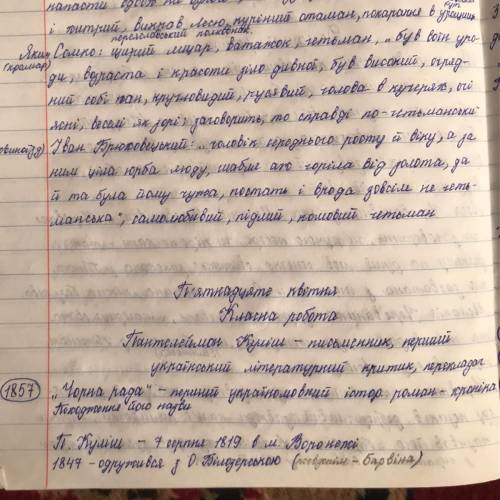 напасти
і хитрий, викрав Лесю, курінний отаман, покараний в
переяславський полковник
Яким Сомко: щирий лицар, ватажок, гетьман, „був воїн уро-
(крамар) ди, возраста і красоти зіло дивної, був високий, огряд-
ний собі пан, кругловидий, русявий, голова в кучерях, очі
ясні, веселі як зорі; заговорить, то справді по-гетьманськи
Іван Брюховецький: „чоловік середнього росту й віку, а за
ним ціла юрба люду, шабля аж горіла від золота, да
й та була йому чужа, постать і врода зовсім не геть-
манська", самолюбивий, підлий, помовий гетьман
П'ятнадцяте квітня
Класна робота
Пантелеймон Куліш – письменник, перший
український літературний критик, перекладач
1857 „Чорна рада" – перший україномовний істор. роман-хроніка
Походження його назви
П. Куліш – 7 серпня 1819 в м. Вороніжі
1847 – одружився з О. Білозерською (псевдонім – Барвіна)